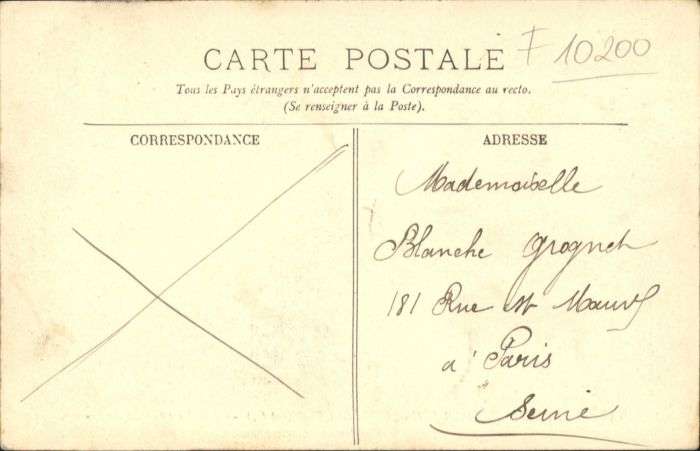 CARTE POSTALE
F 10200
Tous les Pays étrangers n'acceptent pas la Correspondance au recto.
(Se renseigner à la Poste).
CORRESPONDANCE
ADRESSE
Mademoiselle
Blanche Grognet
181 Rue St Maur
à Paris
Seine